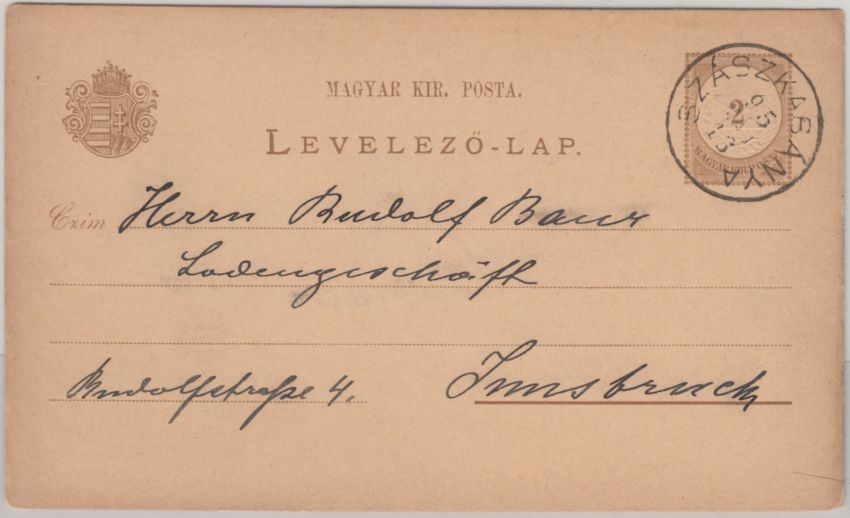 MAGYAR KIR. POSTA.
LEVELEZŐ-LAP.
SZÁSZKABÁNYA
95
13
2
MAGYAR KIR. POSTA
Czim Herrn Rudolf Baur
Lodengeschäft
Rudolfstraße 4. Innsbruck